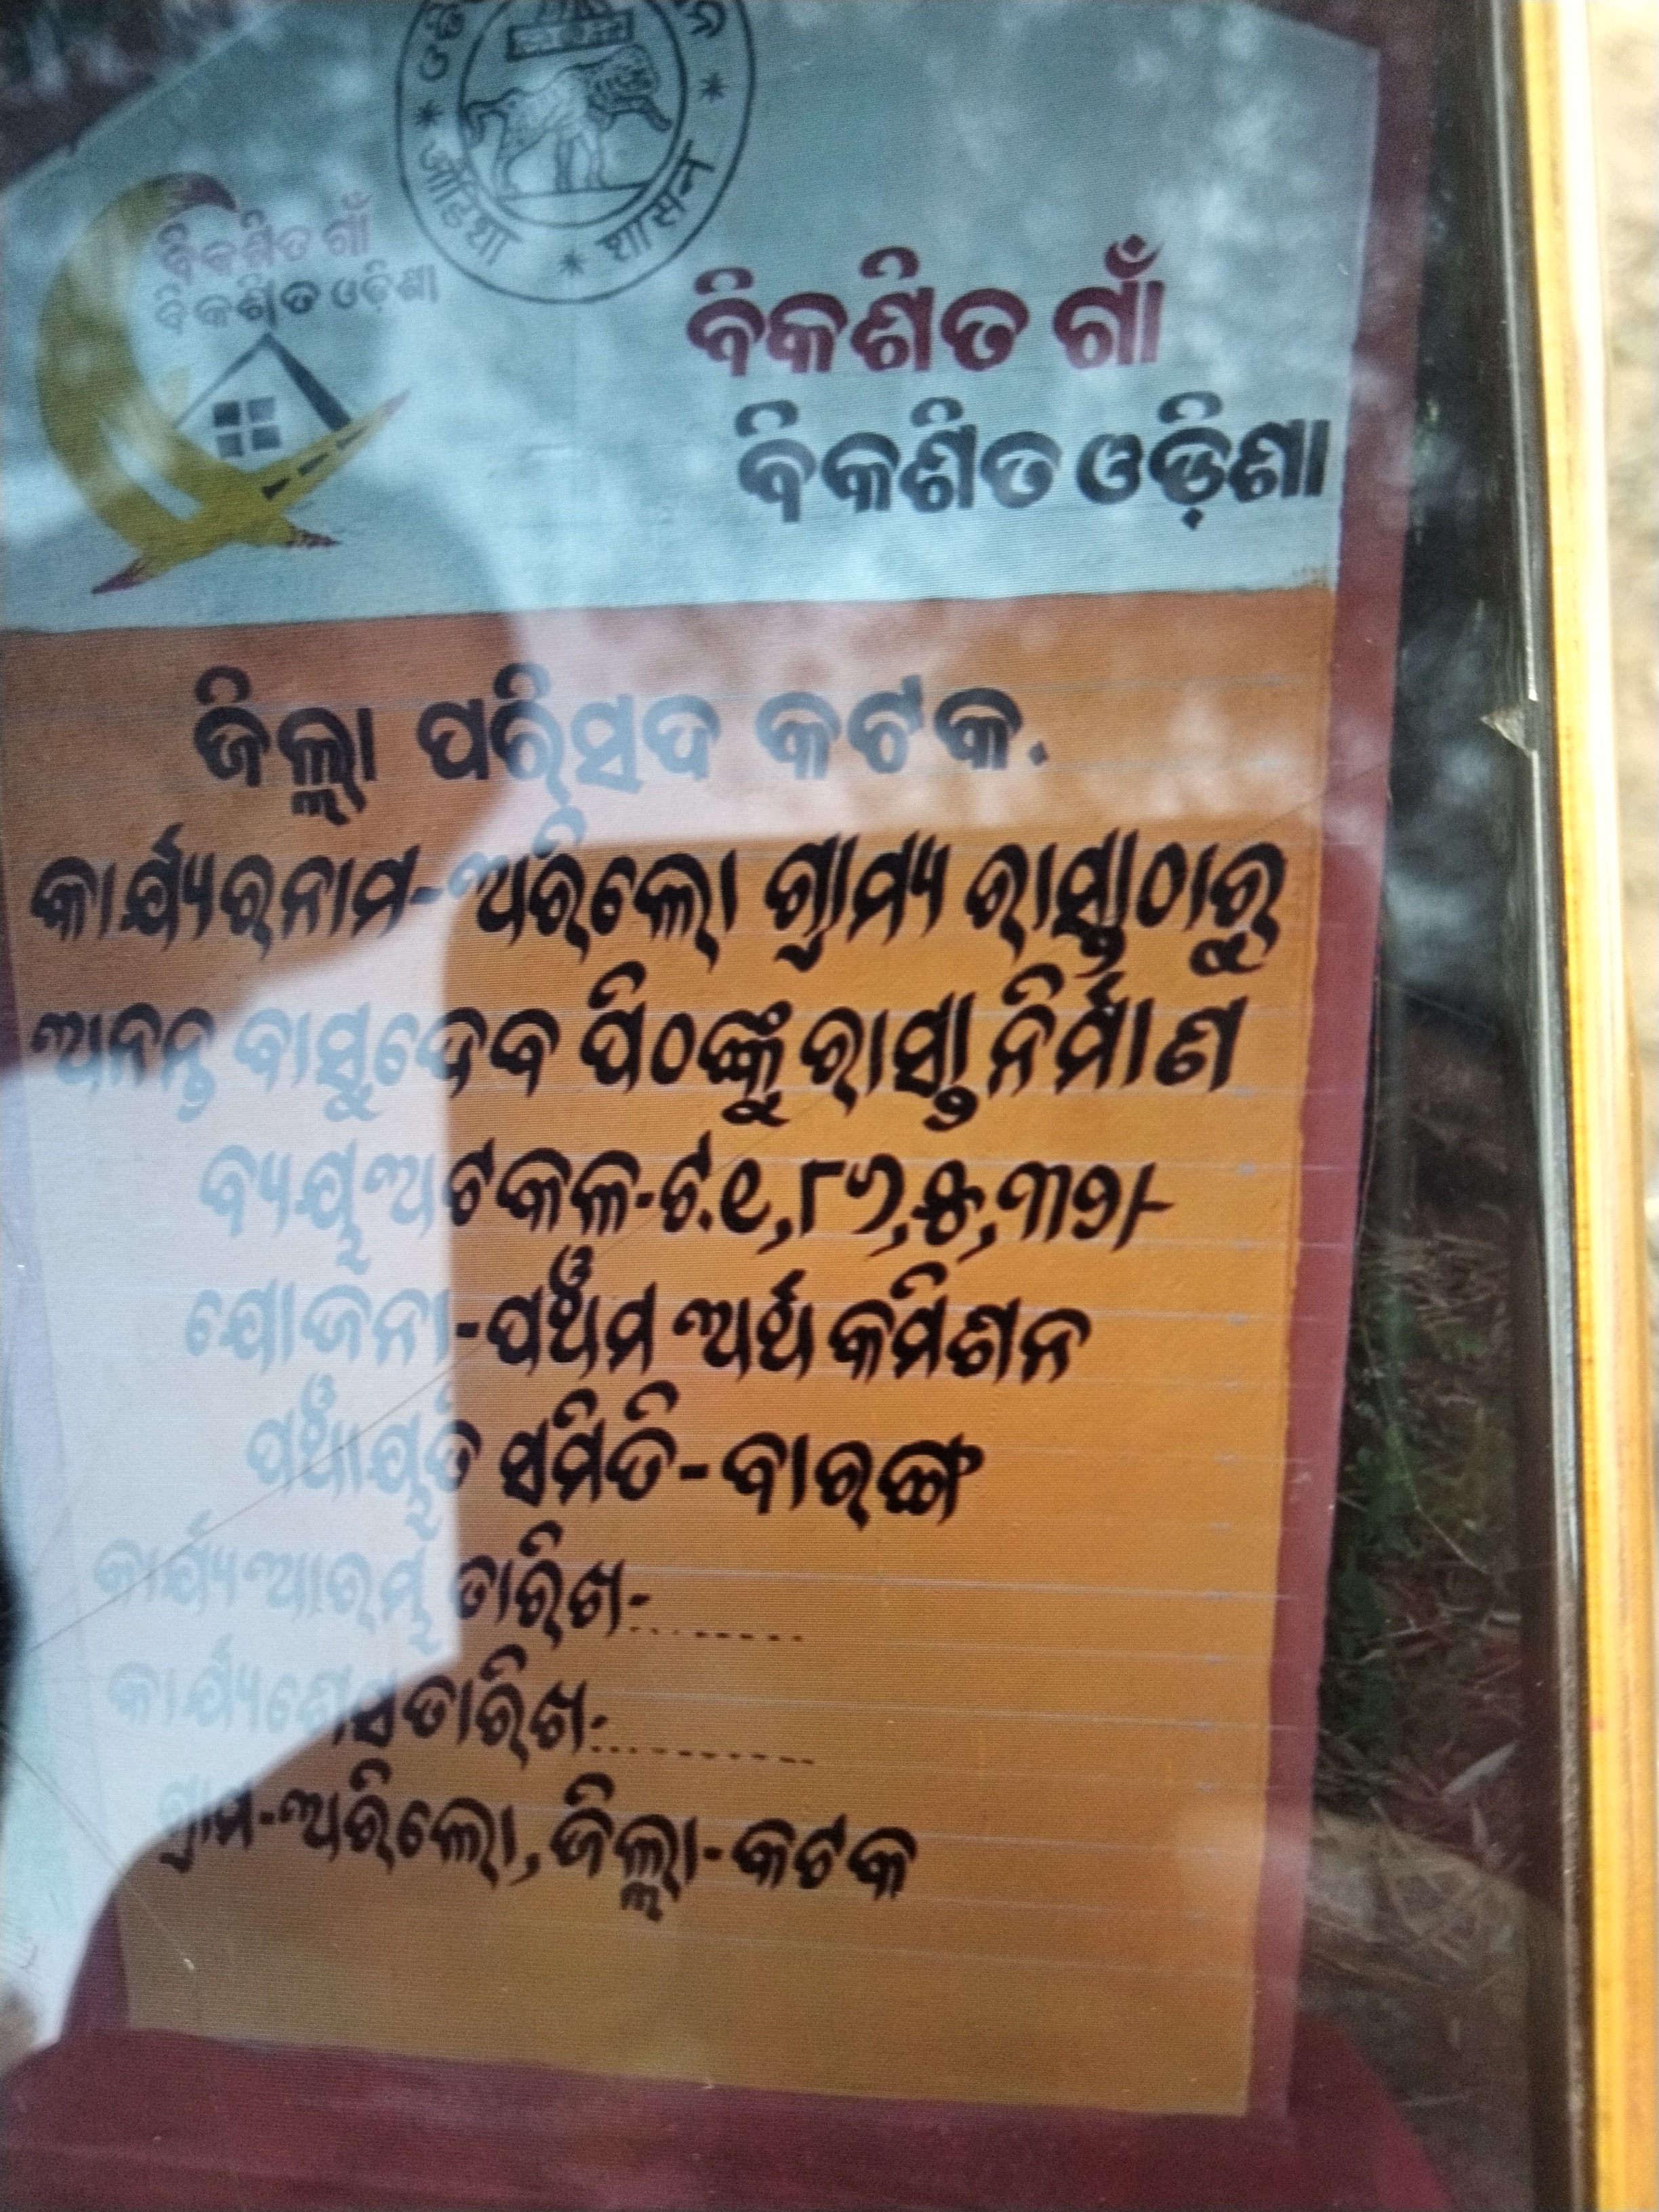 ओडिशा * शासन
ବିକଶିତ ଗାଁ
ବିକଶିତ ଓଡ଼ିଶା
ବିକଶିତ ଗାଁ
ବିକଶିତ ଓଡ଼ିଶା
ଜିଲ୍ଲା ପରିସଦ କଟକ.
କାର୍ଯ୍ୟରନାମ-ଅରିଲୋ ଗ୍ରାମ୍ୟ ରାସ୍ତାଠାରୁ
ଅନନ୍ତ ବାସୁଦେବ ପିଠଙ୍କୁ ରାସ୍ତା ନିର୍ମାଣ
ବ୍ୟୟ ଅଟକଳ-ଟ.୧,୮୬,୫,୩୭/-
ଯୋଜନା-ପଞ୍ଚମ ଅର୍ଥ କମିଶନ
ପଞ୍ଚାୟତି ସମିତି-ବାରଙ୍ଗ
କାର୍ଯ୍ୟ ଆରମ୍ଭ ତାରିଖ-.........
କାର୍ଯ୍ୟଶେସତାରିଖ-..........
ଗ୍ରାମ-ଅରିଲୋ,ଜିଲ୍ଲା-କଟକ